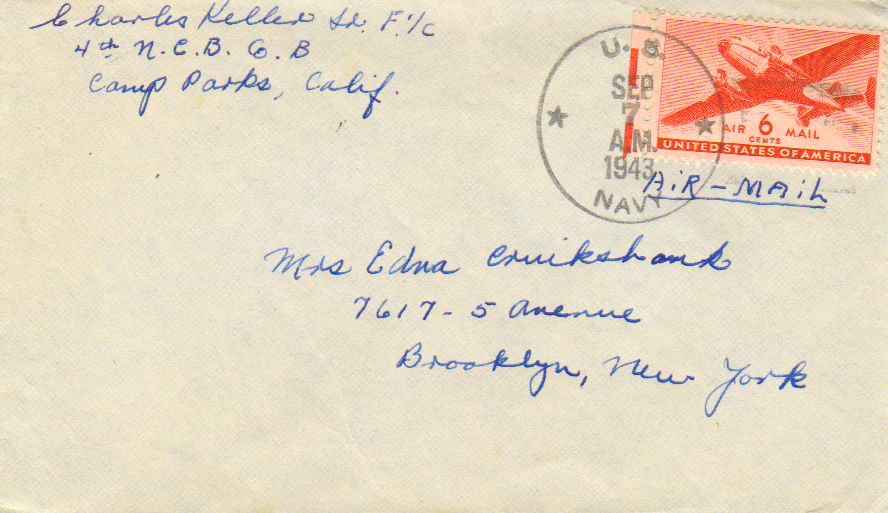 Charles Keller Sr. F.1/c
4th N.C.B. Co. B
Camp Parks, Calif.
U. S.
SEP
7
A.M.
1943
NAVY
AIR 6 MAIL
CENTS
UNITED STATES OF AMERICA
AiR-MAiL
Mrs Edna Cruikshank
7617-5 Avenue
Brooklyn, New York